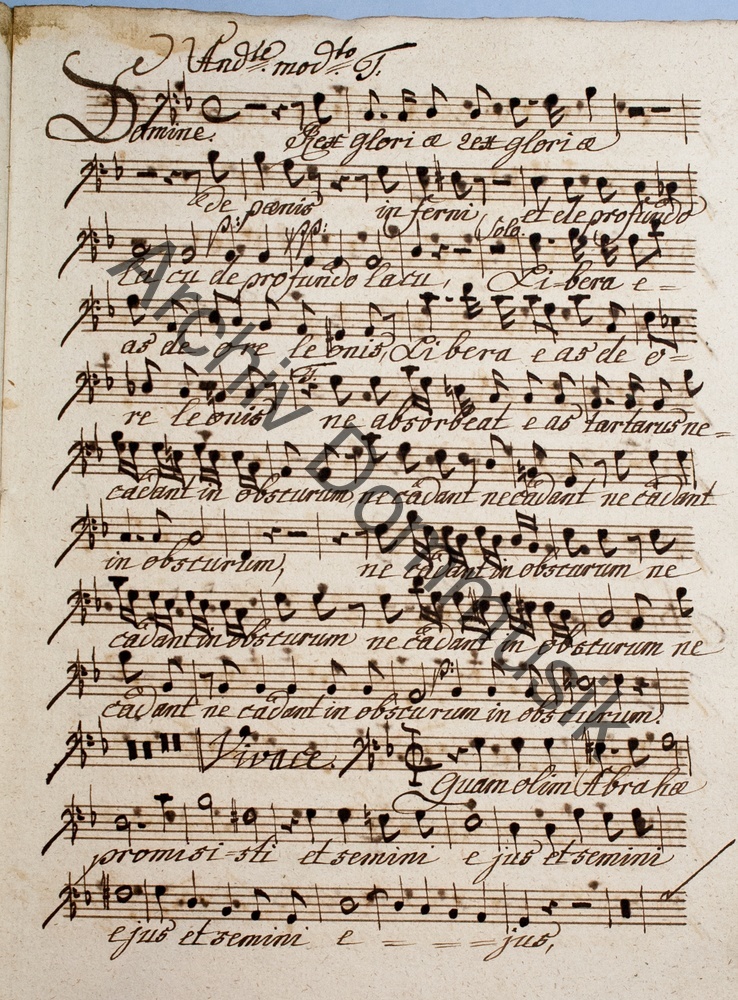 And.te mod.to T.
Domine. Rex gloriæ rex gloriæ
de pœnis in ferni et de profundo
p: pp: Solo.
lacu de profundo lacu, Libera e =
as de ore leonis, Libera e as de o =
T.
re leonis ne absorbeat e as tartarus ne =
cadant in obscurum, ne cadant ne cadant ne cadant
in obscurum, ne cadant in obscurum ne
cadant in obscurum ne cadant in obscurum ne
p:
cadant ne cadant in obscurum in obscurum.
Vivace.
Quam olim Abrahæ
promisi-sti et semini ejus et semini
ejus et semini e = = = = jus,
Archiv Dommusik